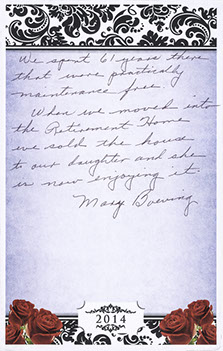 We spent 61 years there
that were practically
maintenance free.
When we moved into
the Retirement Home
we sold the house
to our daughter and she
is now enjoying it.
Mary Boeving
2014